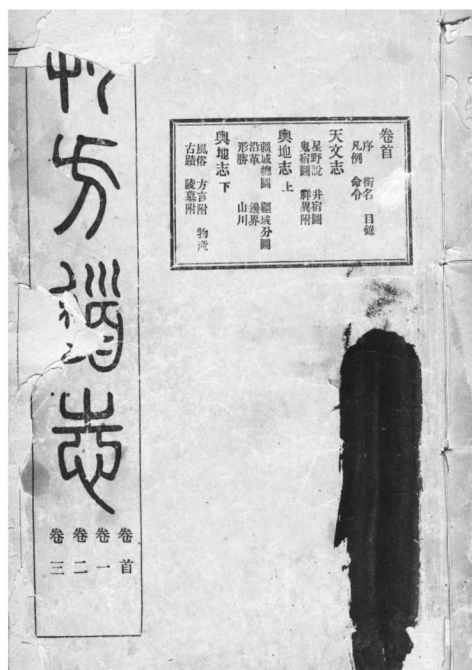 卷首
序 銜名 目錄
凡例 命令
天文志
星野說 井宿圖
鬼宿圖 祥異附
輿地志 上
疆域總圖 疆域分圖
沿革 邊界
形勝 山川
輿地志 下
風俗 方言附 物產
古蹟 陵墓附
朔方道志
卷首
卷一
卷二
卷三